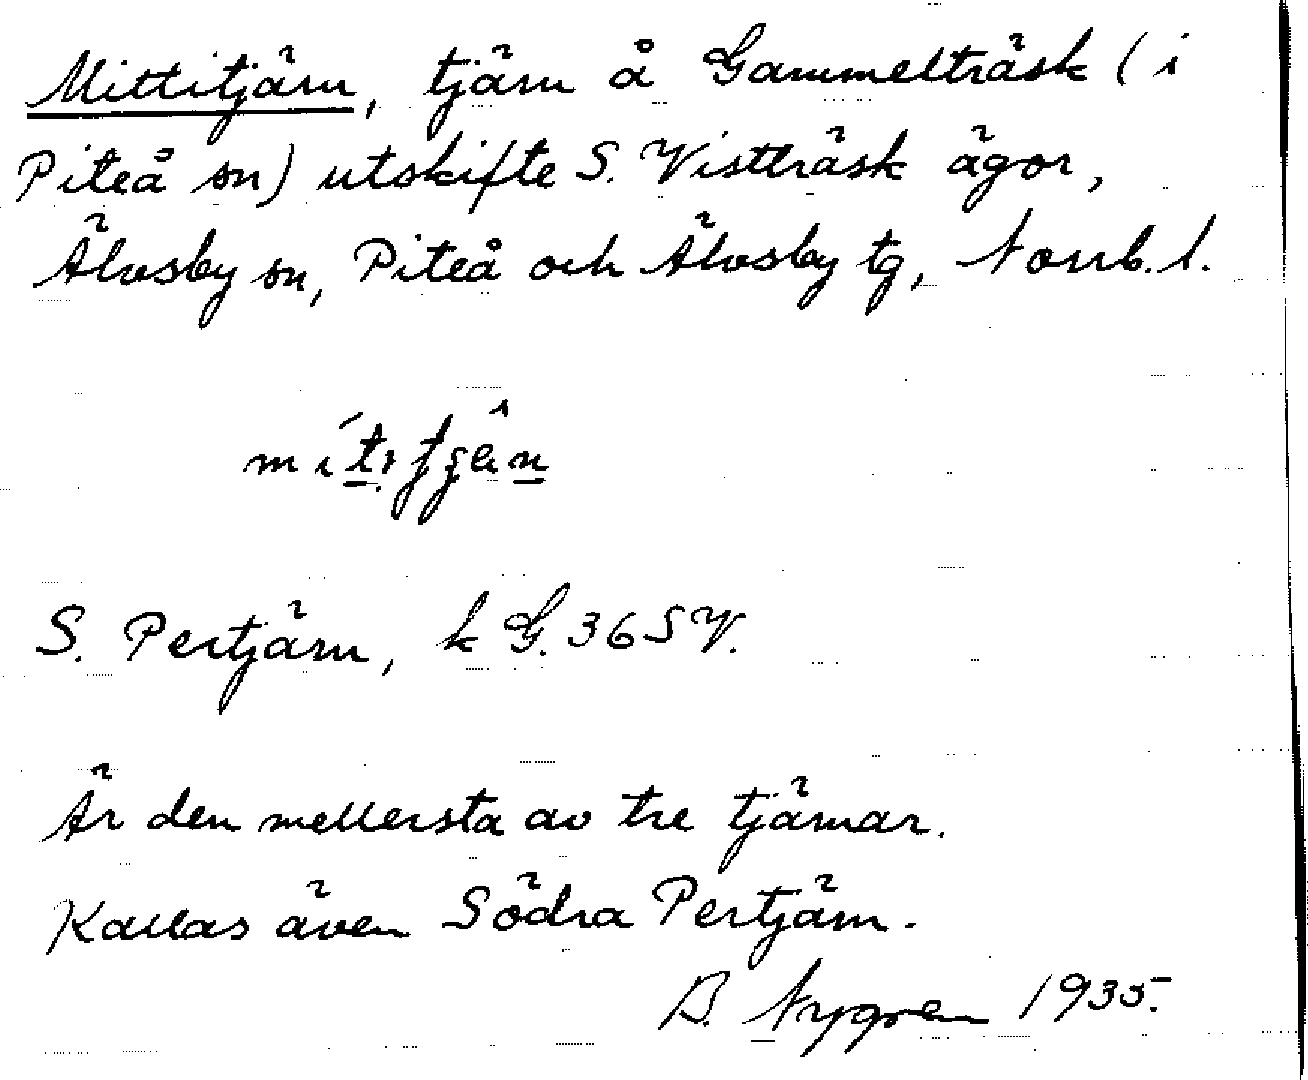 Mittitjärn, tjärn å Gammelträsk (i
Piteå sn) utskifte S. Vistträsk ägor,
Älvsby sn, Piteå och Älvsby tg, Norrb. l.
S. Pertjärn, k G. 36 S V.
Är den mellersta av tre tjärnar.
Kallas även Södra Pertjärn.
B. Nygren 1935.